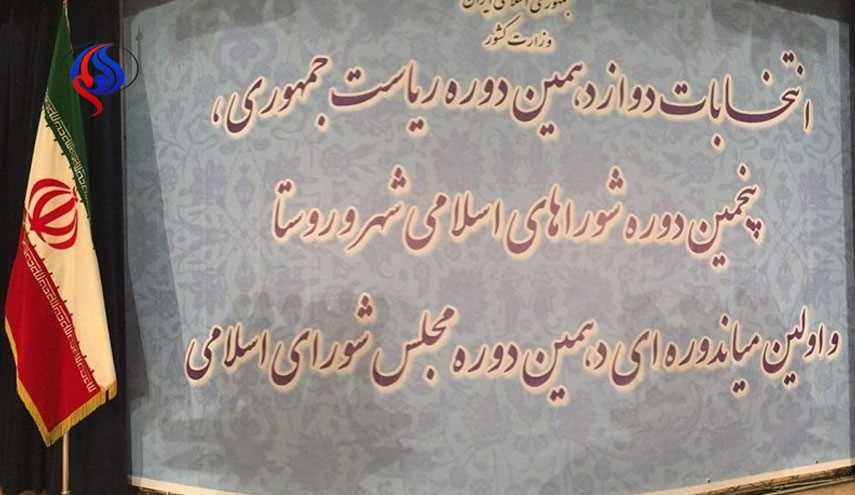 جمهوری اسلامی ایران
وزارت کشور
انتخابات دوازدهمین دوره ریاست جمهوری،
پنجمین دوره شوراهای اسلامی شهر و روستا
و اولین میاندوره ای دهمین دوره مجلس شورای اسلامی